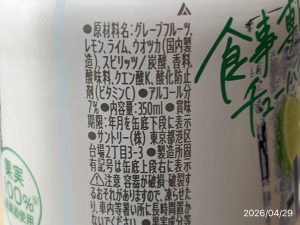 ●原材料名:グレープフルーツ、
レモン、ライム、ウオツカ(国内製
造)、スピリッツ/炭酸、香料、
酸味料、クエン酸K、酸化防止
剤(ビタミンC)●アルコール分
7%●内容量:350ml●賞味
期限:年月を缶底下段に表示
●サントリー(株)東京都港区
台場2丁目3-3●製造所固
有記号は缶底下段左に表示
△注意 容器が破損・噴出す
るおそれがありますので、凍結させた
り、車内等暑い所に長時間置か
ないでください。
食事専
チューハイ
果実
100%
2026/04/29